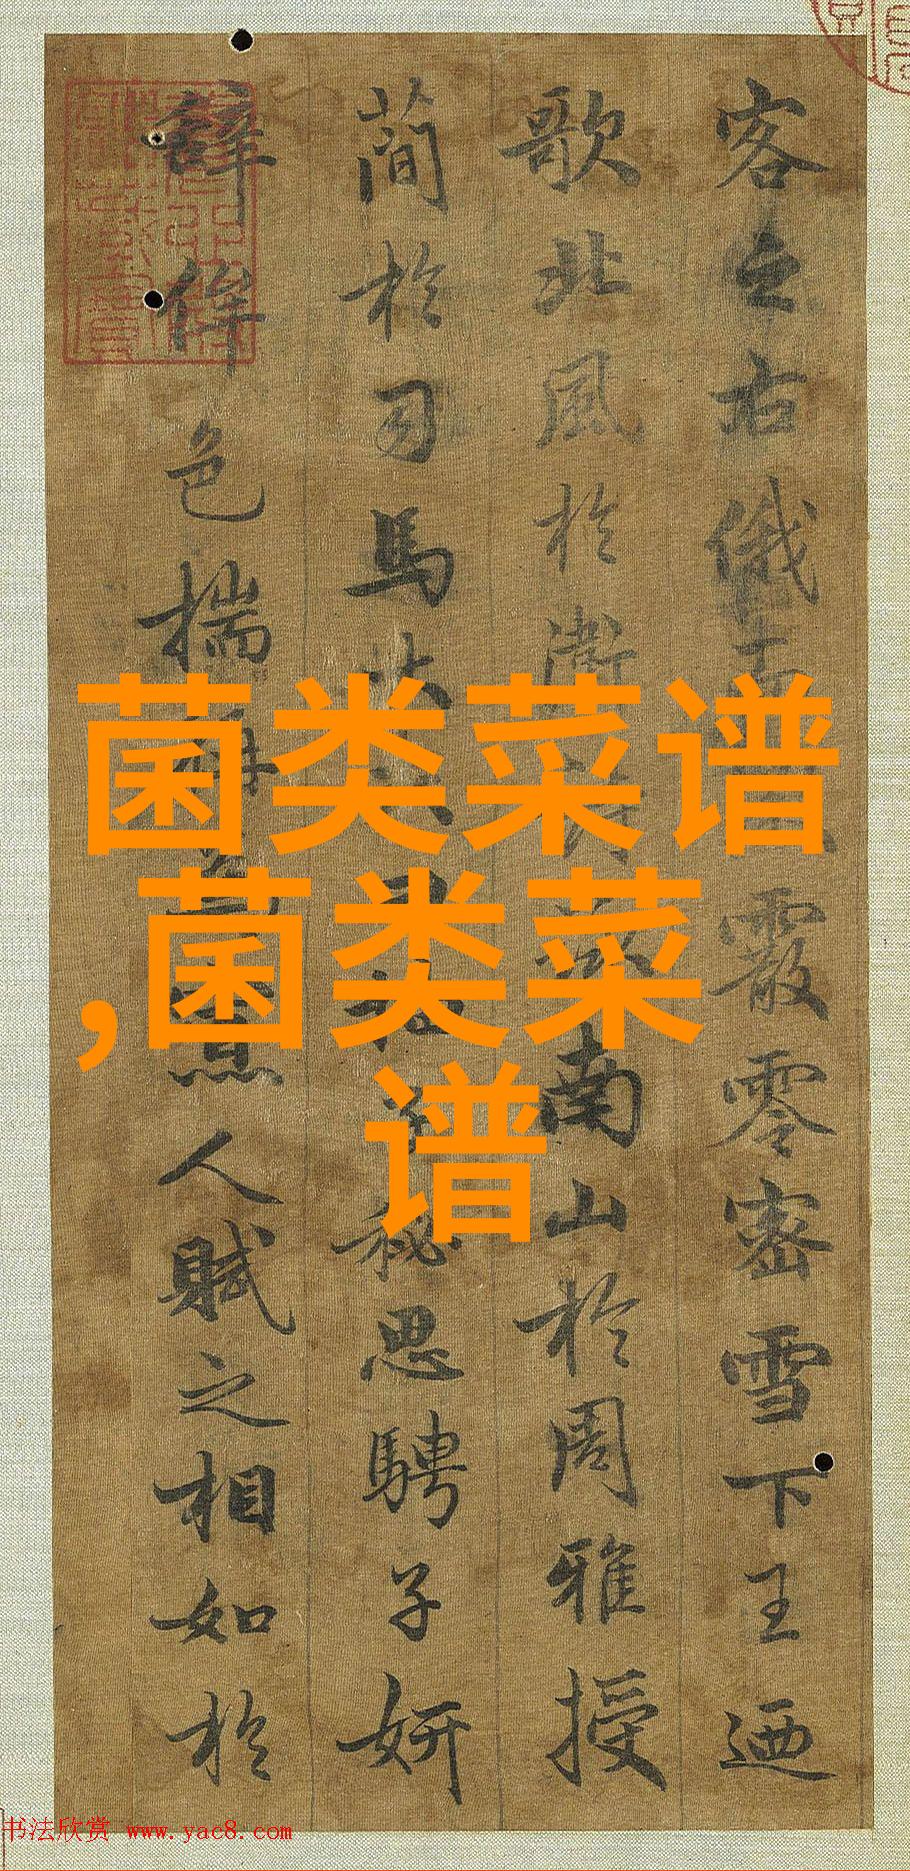 客之右俄而霰零密雪下王迺
歌北風於衛南山於周雅授
簡於司馬秘思騁子妍
辭侔色揣人賦之相如於
菌类菜谱
,菌类菜
谱
书法欣赏 www.yac8.com